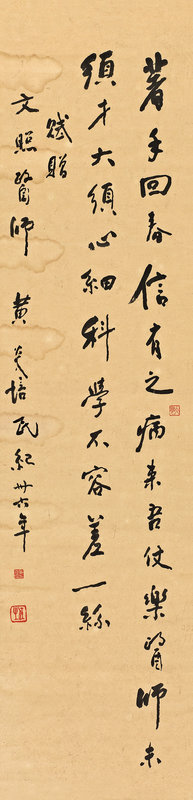 著手回春信有之病來吾仗樂醫師未
須才大須心細科學不容差一絲
賦贈
文照醫師 黃炎培 民紀卅六年